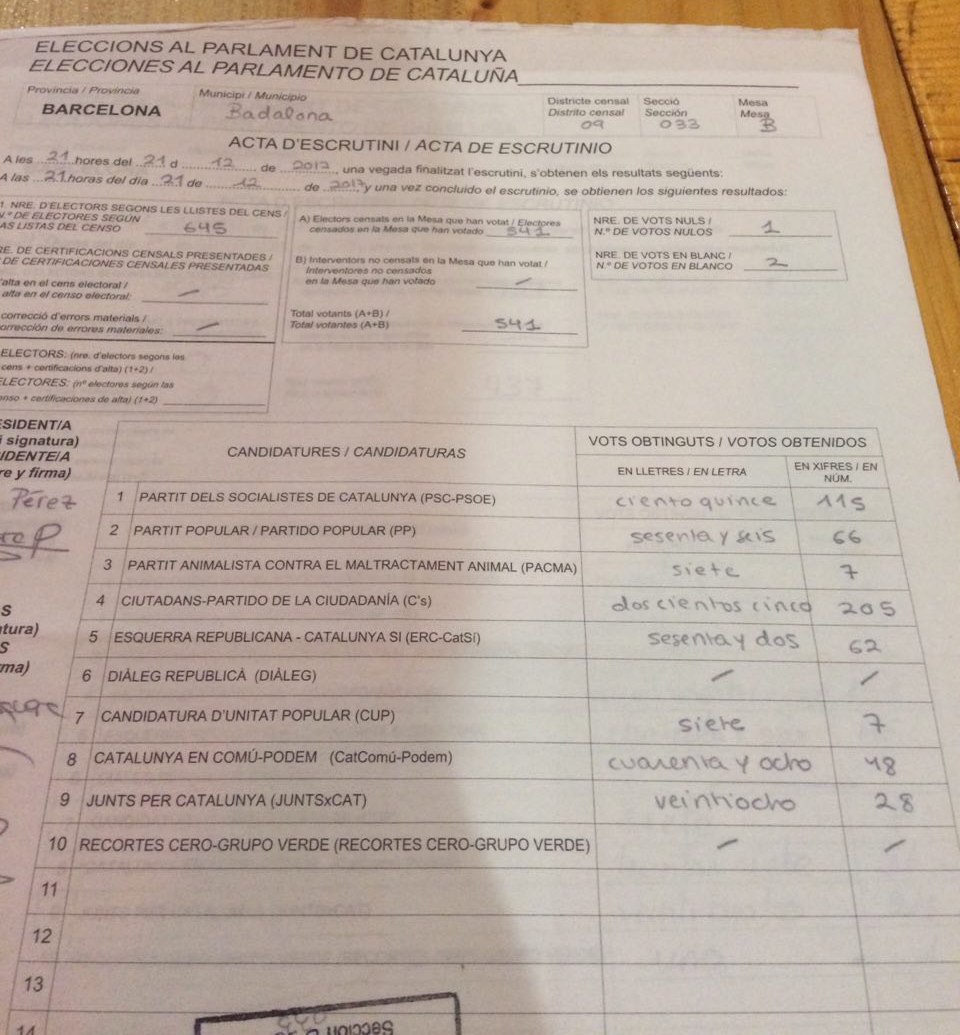 ELECCIONS AL PARLAMENT DE CATALUNYA
ELECCIONES AL PARLAMENTO DE CATALUÑA
Provincia / Provincia
BARCELONA
Municipi / Municipio
Badalona
Districte censal
Distrito censal
09
Secció
Sección
033
Mesa
Mesa
B
ACTA D'ESCRUTINI / ACTA DE ESCRUTINIO
A les 21 hores del 21 d 12 de 2017, una vegada finalitzat l'escrutini, s'obtenen els resultats següents:
A las 21 horas del día 21 de 12 de 2017 y una vez concluido el escrutinio, se obtienen los siguientes resultados:
1. NRE. D'ELECTORS SEGONS LES LLISTES DEL CENS /
N.º DE ELECTORES SEGÚN
AS LISTAS DEL CENSO 645
RE. DE CERTIFICACIONS CENSALS PRESENTADES /
DE CERTIFICACIONES CENSALES PRESENTADAS
alta en el cens electoral /
alta en el censo electoral: /
correcció d'errors materials /
orrección de errores materiales: /
ELECTORS: (nre. d'electors segons les
cens + certificacions d'alta) (1+2) /
ELECTORES: (nº electores según las
enso + certificaciones de alta) (1+2)
A) Electors censats en la Mesa que han votat / Electores
censados en la Mesa que han votado 541
B) Interventors no censats en la Mesa que han votat /
Interventores no censados
en la Mesa que han votado /
Total votants (A+B) /
Total votantes (A+B) 541
NRE. DE VOTS NULS /
N.º DE VOTOS NULOS 1
NRE. DE VOTS EN BLANC /
N.º DE VOTOS EN BLANCO 2
ESIDENT/A
i signatura)
IDENTE/A
re y firma)
Pérez
S
tura)
S
ma)
CANDIDATURES / CANDIDATURAS
VOTS OBTINGUTS / VOTOS OBTENIDOS
EN LLETRES / EN LETRA
EN XIFRES / EN
NÚM.
1 PARTIT DELS SOCIALISTES DE CATALUNYA (PSC-PSOE) ciento quince 115
2 PARTIT POPULAR / PARTIDO POPULAR (PP) sesenta y seis 66
3 PARTIT ANIMALISTA CONTRA EL MALTRACTAMENT ANIMAL (PACMA) siete 7
4 CIUTADANS-PARTIDO DE LA CIUDADANÍA (C's) doscientos cinco 205
5 ESQUERRA REPUBLICANA - CATALUNYA SI (ERC-CatSí) sesenta y dos 62
6 DIÀLEG REPUBLICÀ (DIÀLEG) / /
7 CANDIDATURA D'UNITAT POPULAR (CUP) siete 7
8 CATALUNYA EN COMÚ-PODEM (CatComú-Podem) cuarenta y ocho 48
9 JUNTS PER CATALUNYA (JUNTSxCAT) veintiocho 28
10 RECORTES CERO-GRUPO VERDE (RECORTES CERO-GRUPO VERDE) / /
11
12
13
14
Sección